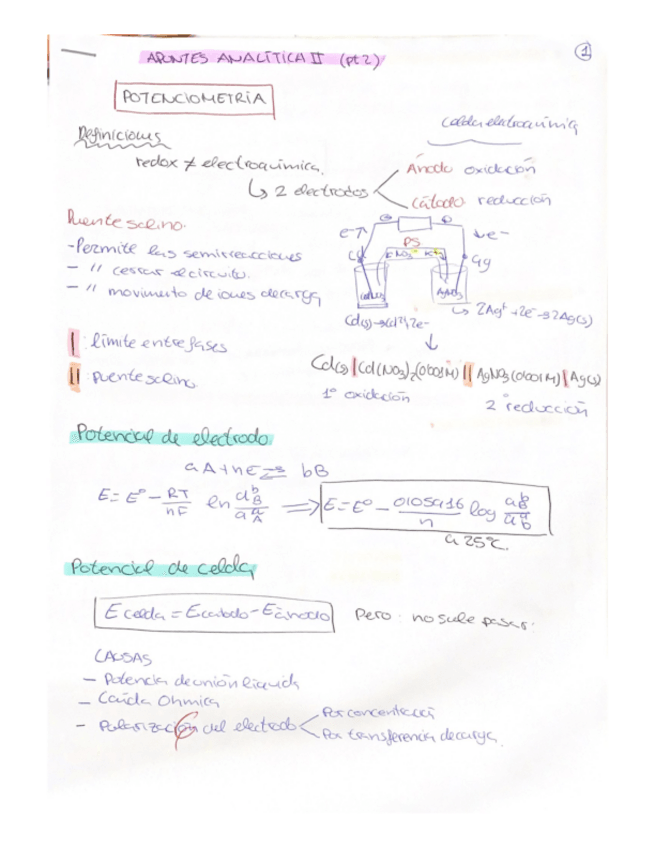 APUNTES ANALÍTICA II (pt2)
1
POTENCIOMETRIA
Definiciones
celda electroquímica
redox ≠ electroquímica.
↳ 2 electrodos
Ánodo oxidación
Cátodo reducción
Puente salino.
-Permite las semirreacciones
- " cerrar el circuito.
- " movimiento de iones de carga
e-
PS
e-
Cd
Ag
AgNO3
Cd(s)→Cd2+ 2e-
↳ 2Ag+ +2e- → 2Ag(s)
| : límite entre fases
|| : puente salino
Cd(s)|Cd(NO3)2(0'001M)||AgNO3(0'001M)|Ag(s)
1º oxidación
2º reducción
Potencial de electrodo
aA+nE ⇌ bB
E= Eº - RT/nF ln aB^b/aA^a ⟹ E=Eº - 0'05916/n log
a 25ºC
Potencial de celda
Ecelda = Ecátodo - Eánodo
Pero: no suele pasar:
CAUSAS
- Potencia de unión líquida
- Caída Ohmica
- Polarización del electrodo
Por concentració
Por transferencia de carga.